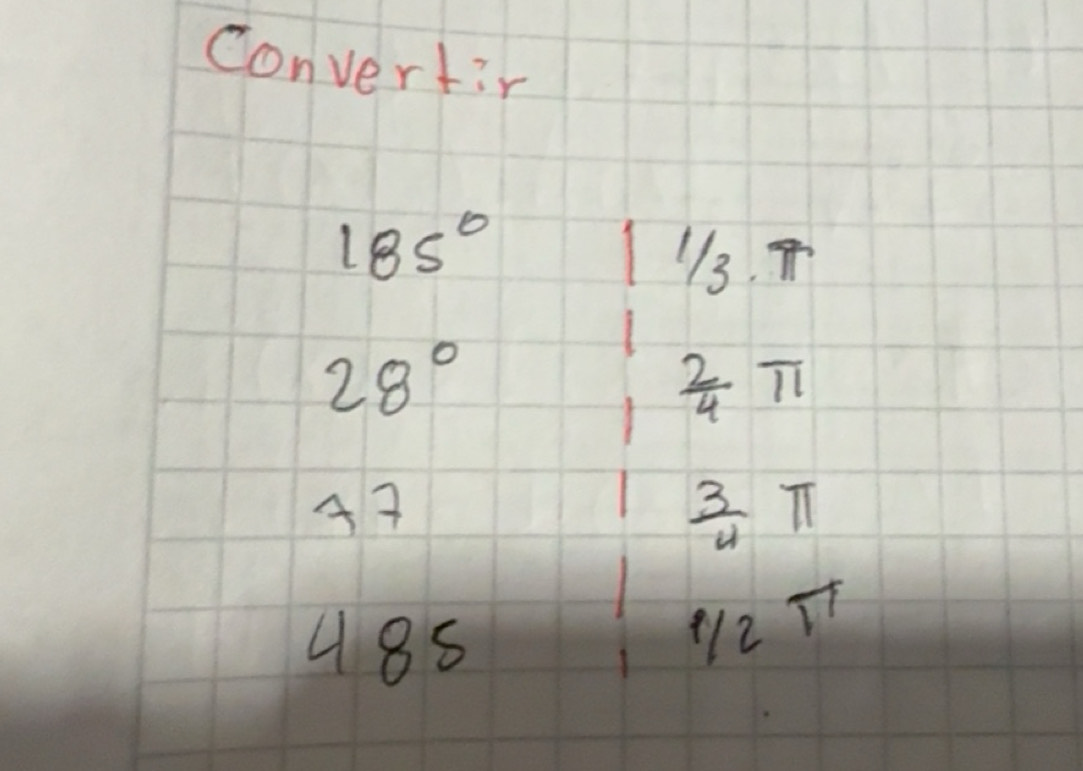 Convertir
185° | 1/3 . π
28° | 2/4 π
77 | 3/4 π
485 | 1/2 π